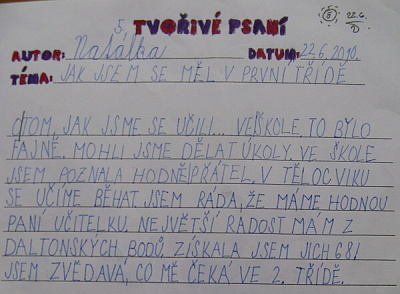 5. TVOŘIVÉ PSANÍ
5 22.6.
AUTOR: Natálka DATUM: 22.6.2010
TÉMA: JAK JSEM SE MĚL V PRVNÍ TŘÍDĚ
O TOM, JAK JSME SE UČILI... VE ŠKOLE TO BYLO
FAJNĚ. MOHLI JSME DĚLAT ÚKOLY. VE ŠKOLE
JSEM POZNALA HODNĚ PŘÁTEL. V TĚLOCVIKU
SE UČÍME BĚHAT. JSEM RÁDA, ŽE MÁME HODNOU
PANÍ UČITELKU. NEJVĚTŠÍ RADOST MÁM Z
DALTONSKÝCH BODŮ. ZÍSKALA JSEM JICH 68!
JSEM ZVĚDAVÁ, CO MĚ ČEKÁ VE 2. TŘÍDĚ.